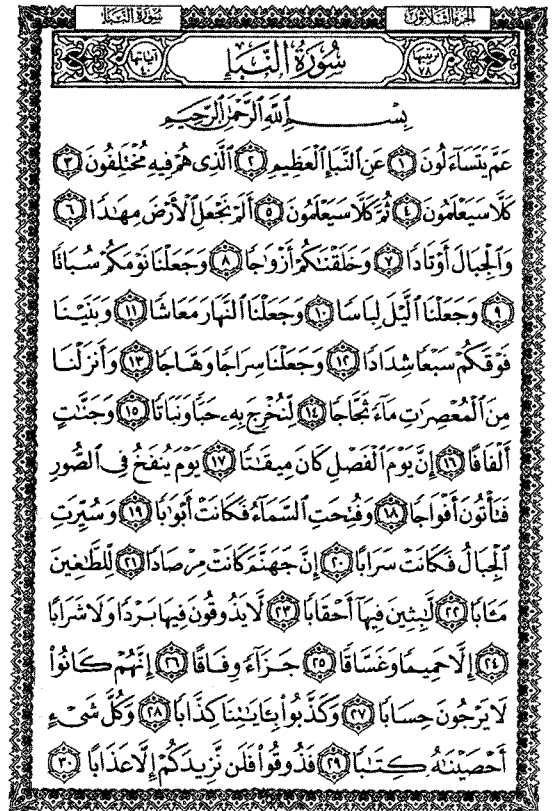 سُورَةُ النَّبَإِ الجزء الثلاثون
ترتيبها ٧٨ سُورَةُ النَّبَإِ آياتها ٤٠
بِسْمِ اللَّهِ الرَّحْمَٰنِ الرَّحِيمِ
عَمَّ يَتَسَآءَلُونَ ١ عَنِ النَّبَإِ الْعَظِيمِ ٢ الَّذِى هُمْ فِيهِ مُخْتَلِفُونَ ٣
كَلَّا سَيَعْلَمُونَ ٤ ثُمَّ كَلَّا سَيَعْلَمُونَ ٥ أَلَمْ نَجْعَلِ الْأَرْضَ مِهَٰدًا ٦
وَالْجِبَالَ أَوْتَادًا ٧ وَخَلَقْنَٰكُمْ أَزْوَٰجًا ٨ وَجَعَلْنَا نَوْمَكُمْ سُبَاتًا
٩ وَجَعَلْنَا الَّيْلَ لِبَاسًا ١٠ وَجَعَلْنَا النَّهَارَ مَعَاشًا ١١ وَبَنَيْنَا
فَوْقَكُمْ سَبْعًا شِدَادًا ١٢ وَجَعَلْنَا سِرَاجًا وَهَّاجًا ١٣ وَأَنزَلْنَا
مِنَ الْمُعْصِرَٰتِ مَآءً ثَجَّاجًا ١٤ لِّنُخْرِجَ بِهِۦ حَبًّا وَنَبَاتًا ١٥ وَجَنَّٰتٍ
أَلْفَافًا ١٦ إِنَّ يَوْمَ الْفَصْلِ كَانَ مِيقَٰتًا ١٧ يَوْمَ يُنفَخُ فِى الصُّورِ
فَتَأْتُونَ أَفْوَاجًا ١٨ وَفُتِحَتِ السَّمَآءُ فَكَانَتْ أَبْوَٰبًا ١٩ وَسُيِّرَتِ
الْجِبَالُ فَكَانَتْ سَرَابًا ٢٠ إِنَّ جَهَنَّمَ كَانَتْ مِرْصَادًا ٢١ لِّلطَّٰغِينَ
مَـَٔابًا ٢٢ لَّٰبِثِينَ فِيهَآ أَحْقَابًا ٢٣ لَّا يَذُوقُونَ فِيهَا بَرْدًا وَلَا شَرَابًا
٢٤ إِلَّا حَمِيمًا وَغَسَّاقًا ٢٥ جَزَآءً وِفَاقًا ٢٦ إِنَّهُمْ كَانُوا۟
لَا يَرْجُونَ حِسَابًا ٢٧ وَكَذَّبُوا۟ بِـَٔايَٰتِنَا كِذَّابًا ٢٨ وَكُلَّ شَىْءٍ
أَحْصَيْنَٰهُ كِتَٰبًا ٢٩ فَذُوقُوا۟ فَلَن نَّزِيدَكُمْ إِلَّا عَذَابًا ٣٠